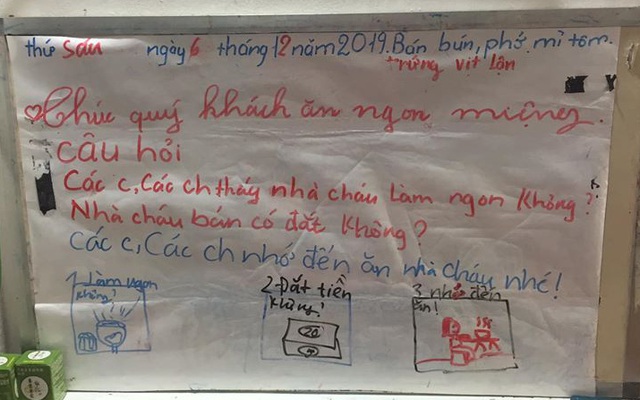 thứ Sáu ngày 6 tháng 12 năm 2019. Bán bún, phở mì tôm.
trứng vịt lộn
Chúc quý khách ăn ngon miệng.
câu hỏi
Các c, Các ch thấy nhà cháu làm ngon không?
Nhà cháu bán có đắt không?
Các c, Các ch nhớ đến ăn nhà cháu nhé!
1 Làm ngon không?
2 Đắt tiền không?
20
3 nhớ đến ăn!